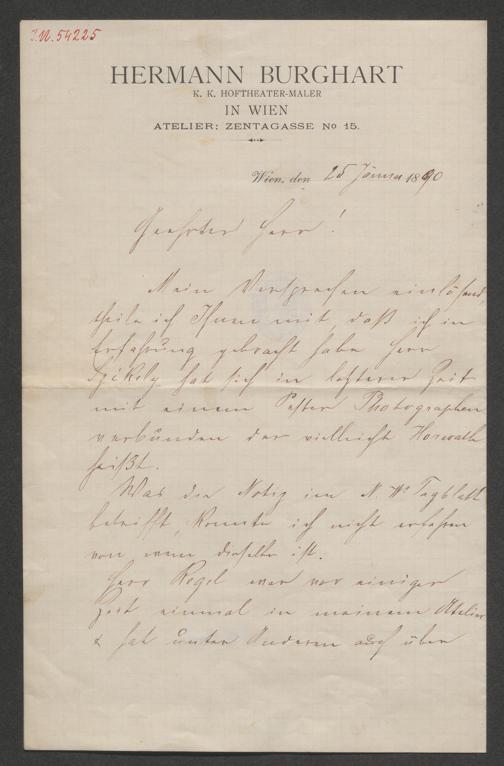 I.N. 54225
HERMANN BURGHART
K. K. HOFTHEATER-MALER
IN WIEN
ATELIER: ZENTAGASSE No 15.
Wien, den 25 Jänner 1890
Geehrter Herr!
Mein Versprechen einlösend,
theile ich Ihnen mit, daß ich in
Erfahrung gebracht habe Herr
Székely hat sich in letzterer Zeit
mit einem Pester Photographen
verbunden der vielleicht Horwath
heißt.
Was die Notiz im N. Wr Tagblatt
betrifft, konnte ich nicht erfahren
von wem dieselbe ist.
Herr Regel war vor einiger
Zeit einmal in meinem Atelier
& hat unter Anderem auch über